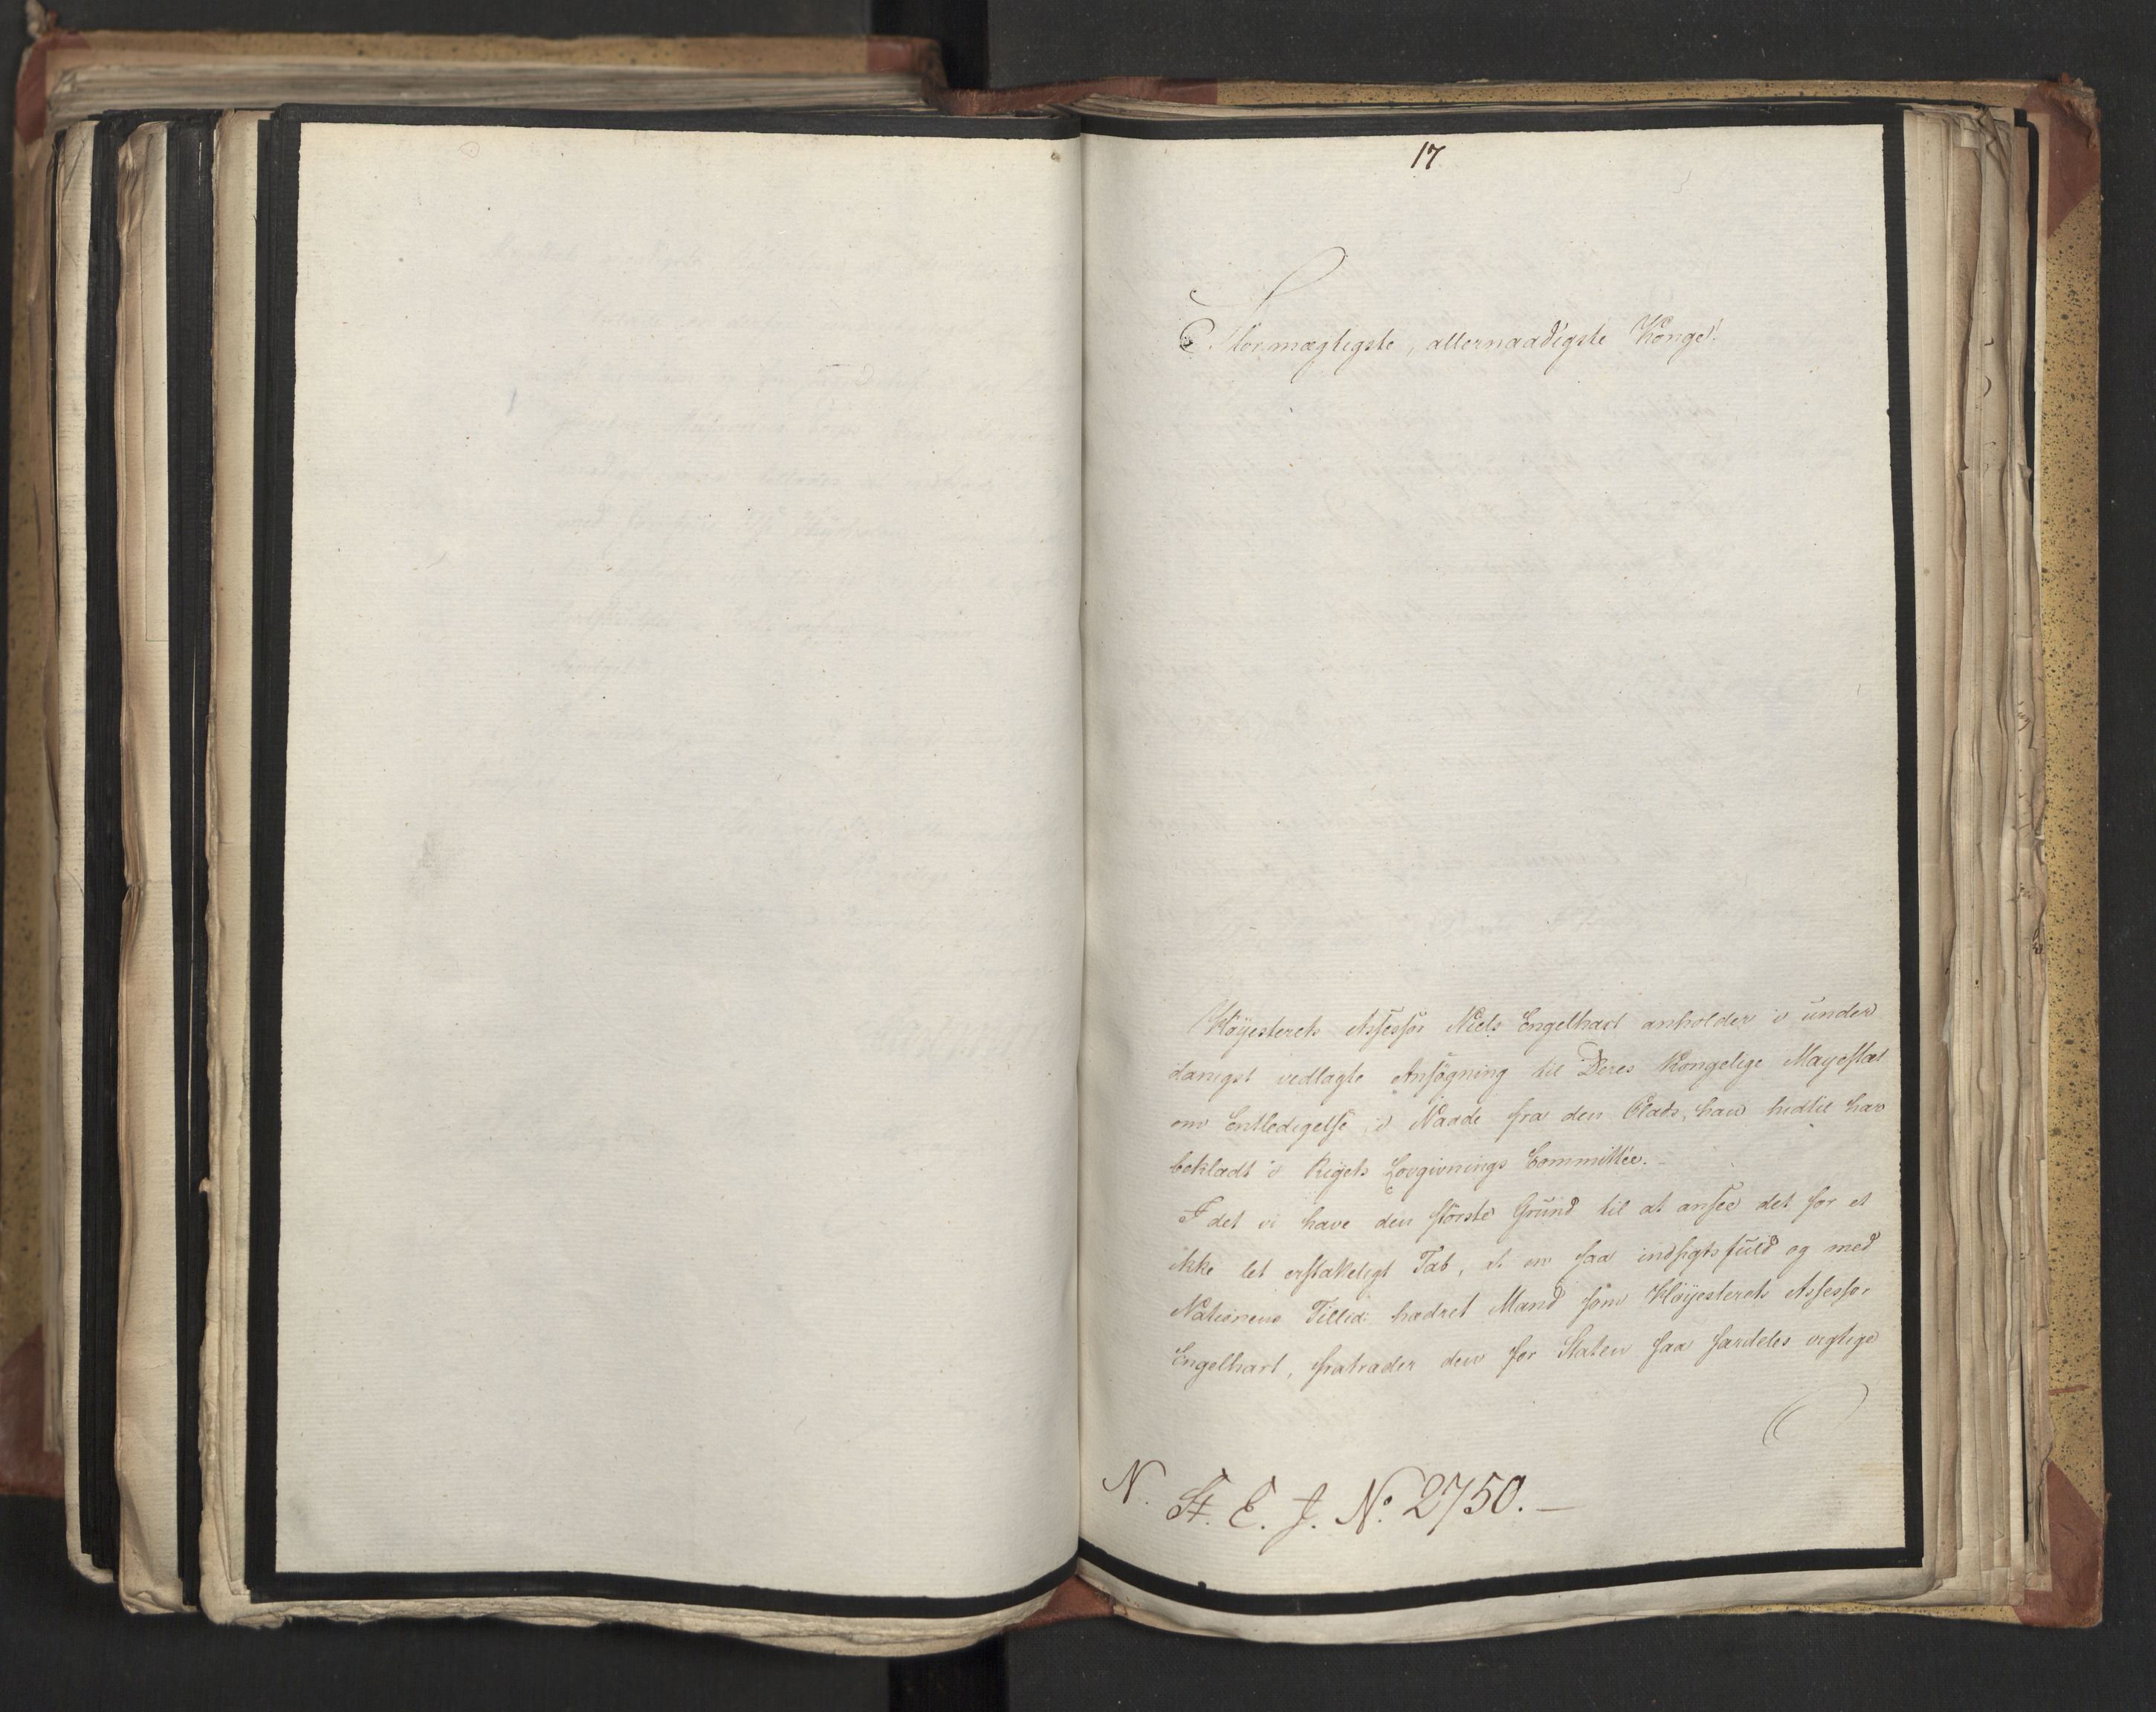 17
Stormægtigste, allernaadigste Konge!
Høyesterets Assessor Niels Engelhart anholder i under
danigst vedlagte Ansøgning til Deres Kongelige Mayestæt
om Entledigelse i Naade fra den Plads, han hidtil har
beklædt i Rigets Lovgivnings Committée.
I det vi have den største Grund til at ansee det for et
ikke let erstatteligt Tab, at en saa indsigtsfuld og med
Nationens Tillid hædret Mand som Høyesterets Assessor
Engelhart, fratræder den for Staten saa særdeles vigtige
N. St. E. J. No. 2750. —